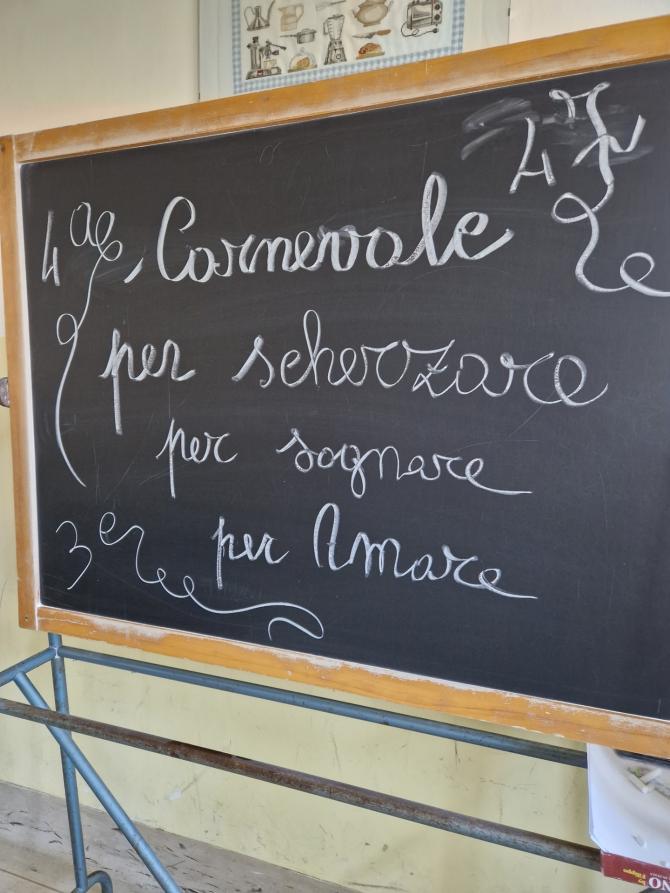 Carnevale
per scherzare
per sognare
per Amare